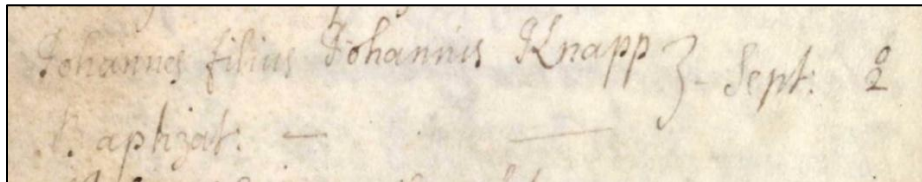 Johannes filius Johannis Knapp } - Sept: 2º
Baptizat. — —